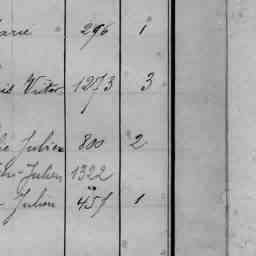 arie 296 1
Victor 1273 3
Julien 800 2
Julien 1322
Julien 451 1